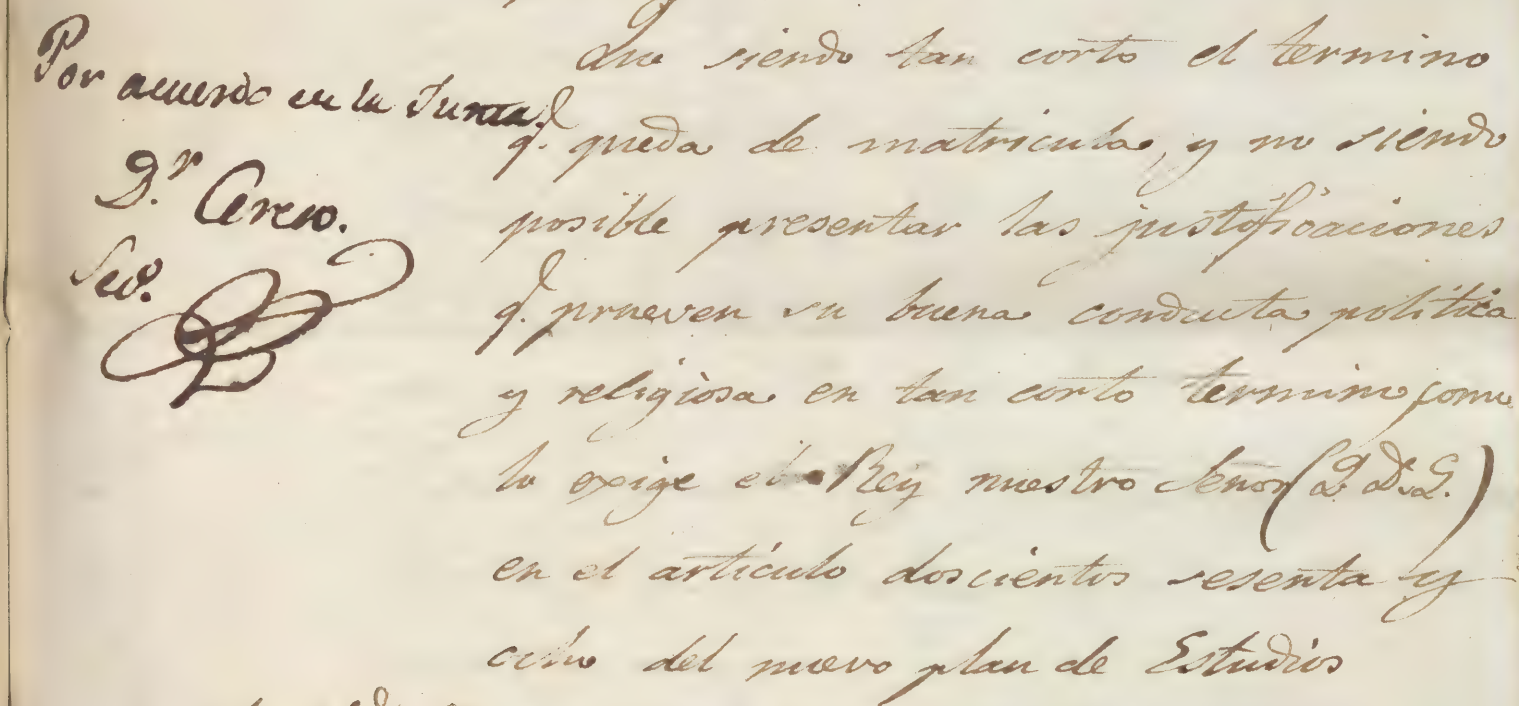 Por acuerdo en la Junta.
D.r Cerero.
Sec.º
Que siendo tan corto el termino
q.e queda de matricula, y no siendo
posible presentar las justificaciones
q.e prueven su buena conducta politica
y religiosa en tan corto termino, como
lo exige el Rey nuestro Señor (Q. D. G.)
en el artículo doscientos sesenta y
ocho del nuevo plan de Estudios